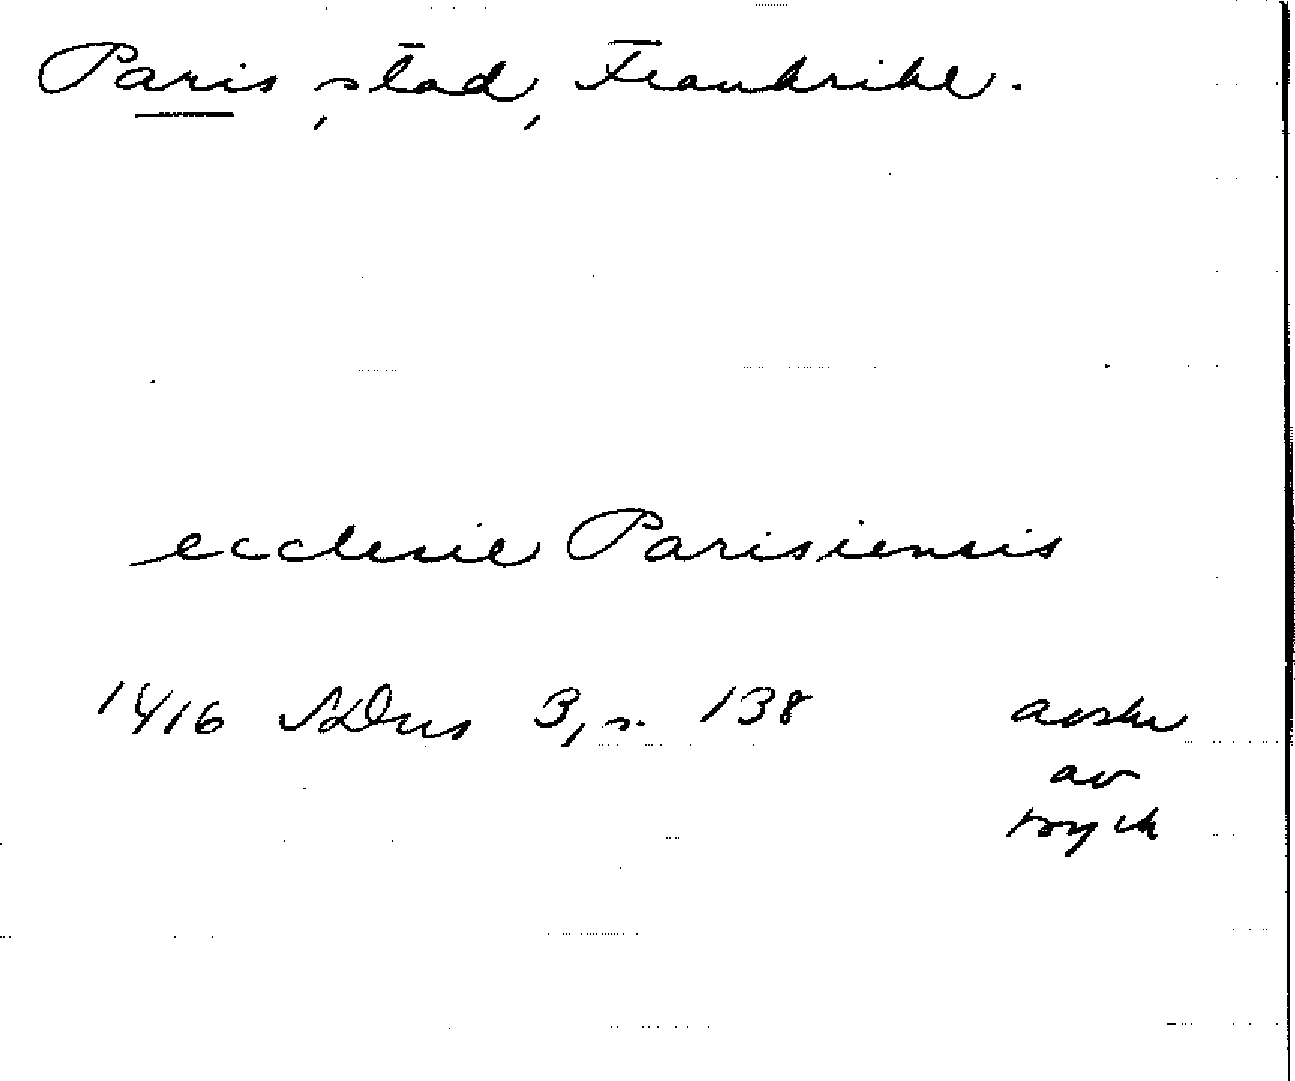 Paris, stad, Frankrike.
ecclesie Parisiensis
1416 SDns 3, s. 138
avskr
av
tryck